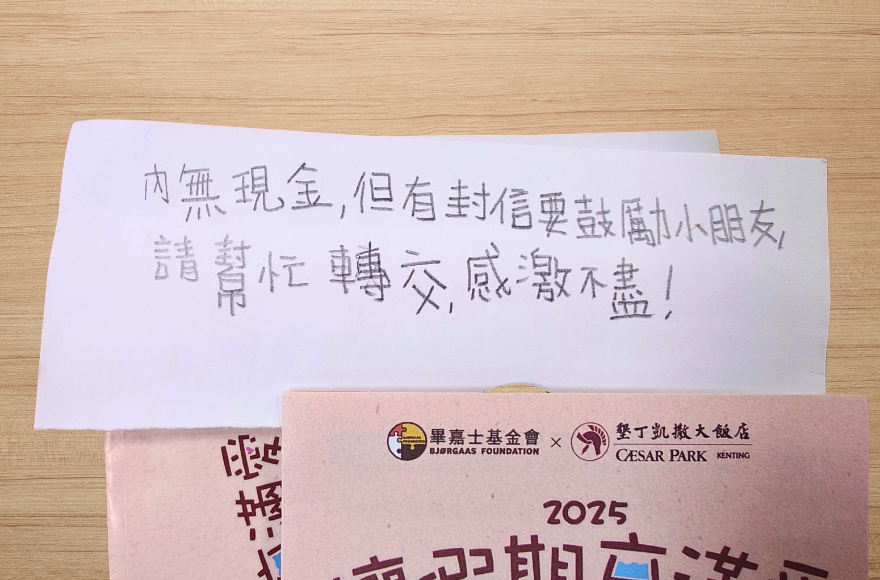 內無現金,但有封信要鼓勵小朋友,
請幫忙轉交,感激不盡!
畢嘉士基金會
BJØRGAAS FOUNDATION
×
墾丁凱撒大飯店
CÆSAR PARK KENTING
2025